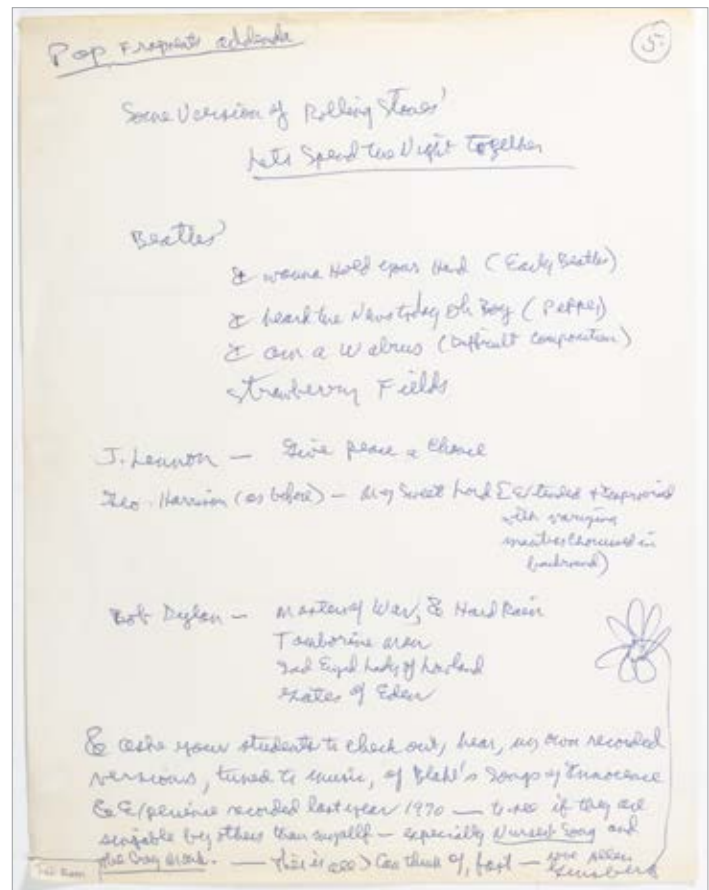 Pop Fragments addenda
5.
Some Version of Rolling Stones'
Lets Spend the Night Together
Beatles'
I wanna Hold your Hand (Early Beatles)
I heard the News today Oh Boy (Pepper)
I am a Walrus (Difficult composition)
Strawberry Fields
J. Lennon — Give peace a Chance
Geo. Harrison (as before) — My Sweet Lord Extended & Improvised
with varying
mantras chorused in
background)
Bob Dylan — Masters of War, & Hard Rain
Tambourine man
Sad Eyed Lady of Lowland
Gates of Eden
& ask your students to check out, hear, my own recorded
versions, tuned to music, of Blake's Songs of Innocence
& Experience recorded last year 1970 — to see if they are
singable by others than myself — especially Nurses Song and
the Grey Monk. — This is all I can think of, fast — Allen
Ginsberg